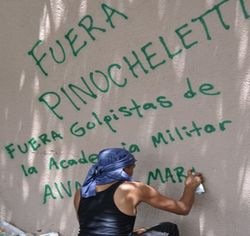 FUERA
PINOCHELETTI
FUERA Golpistas de
la Academia Militar